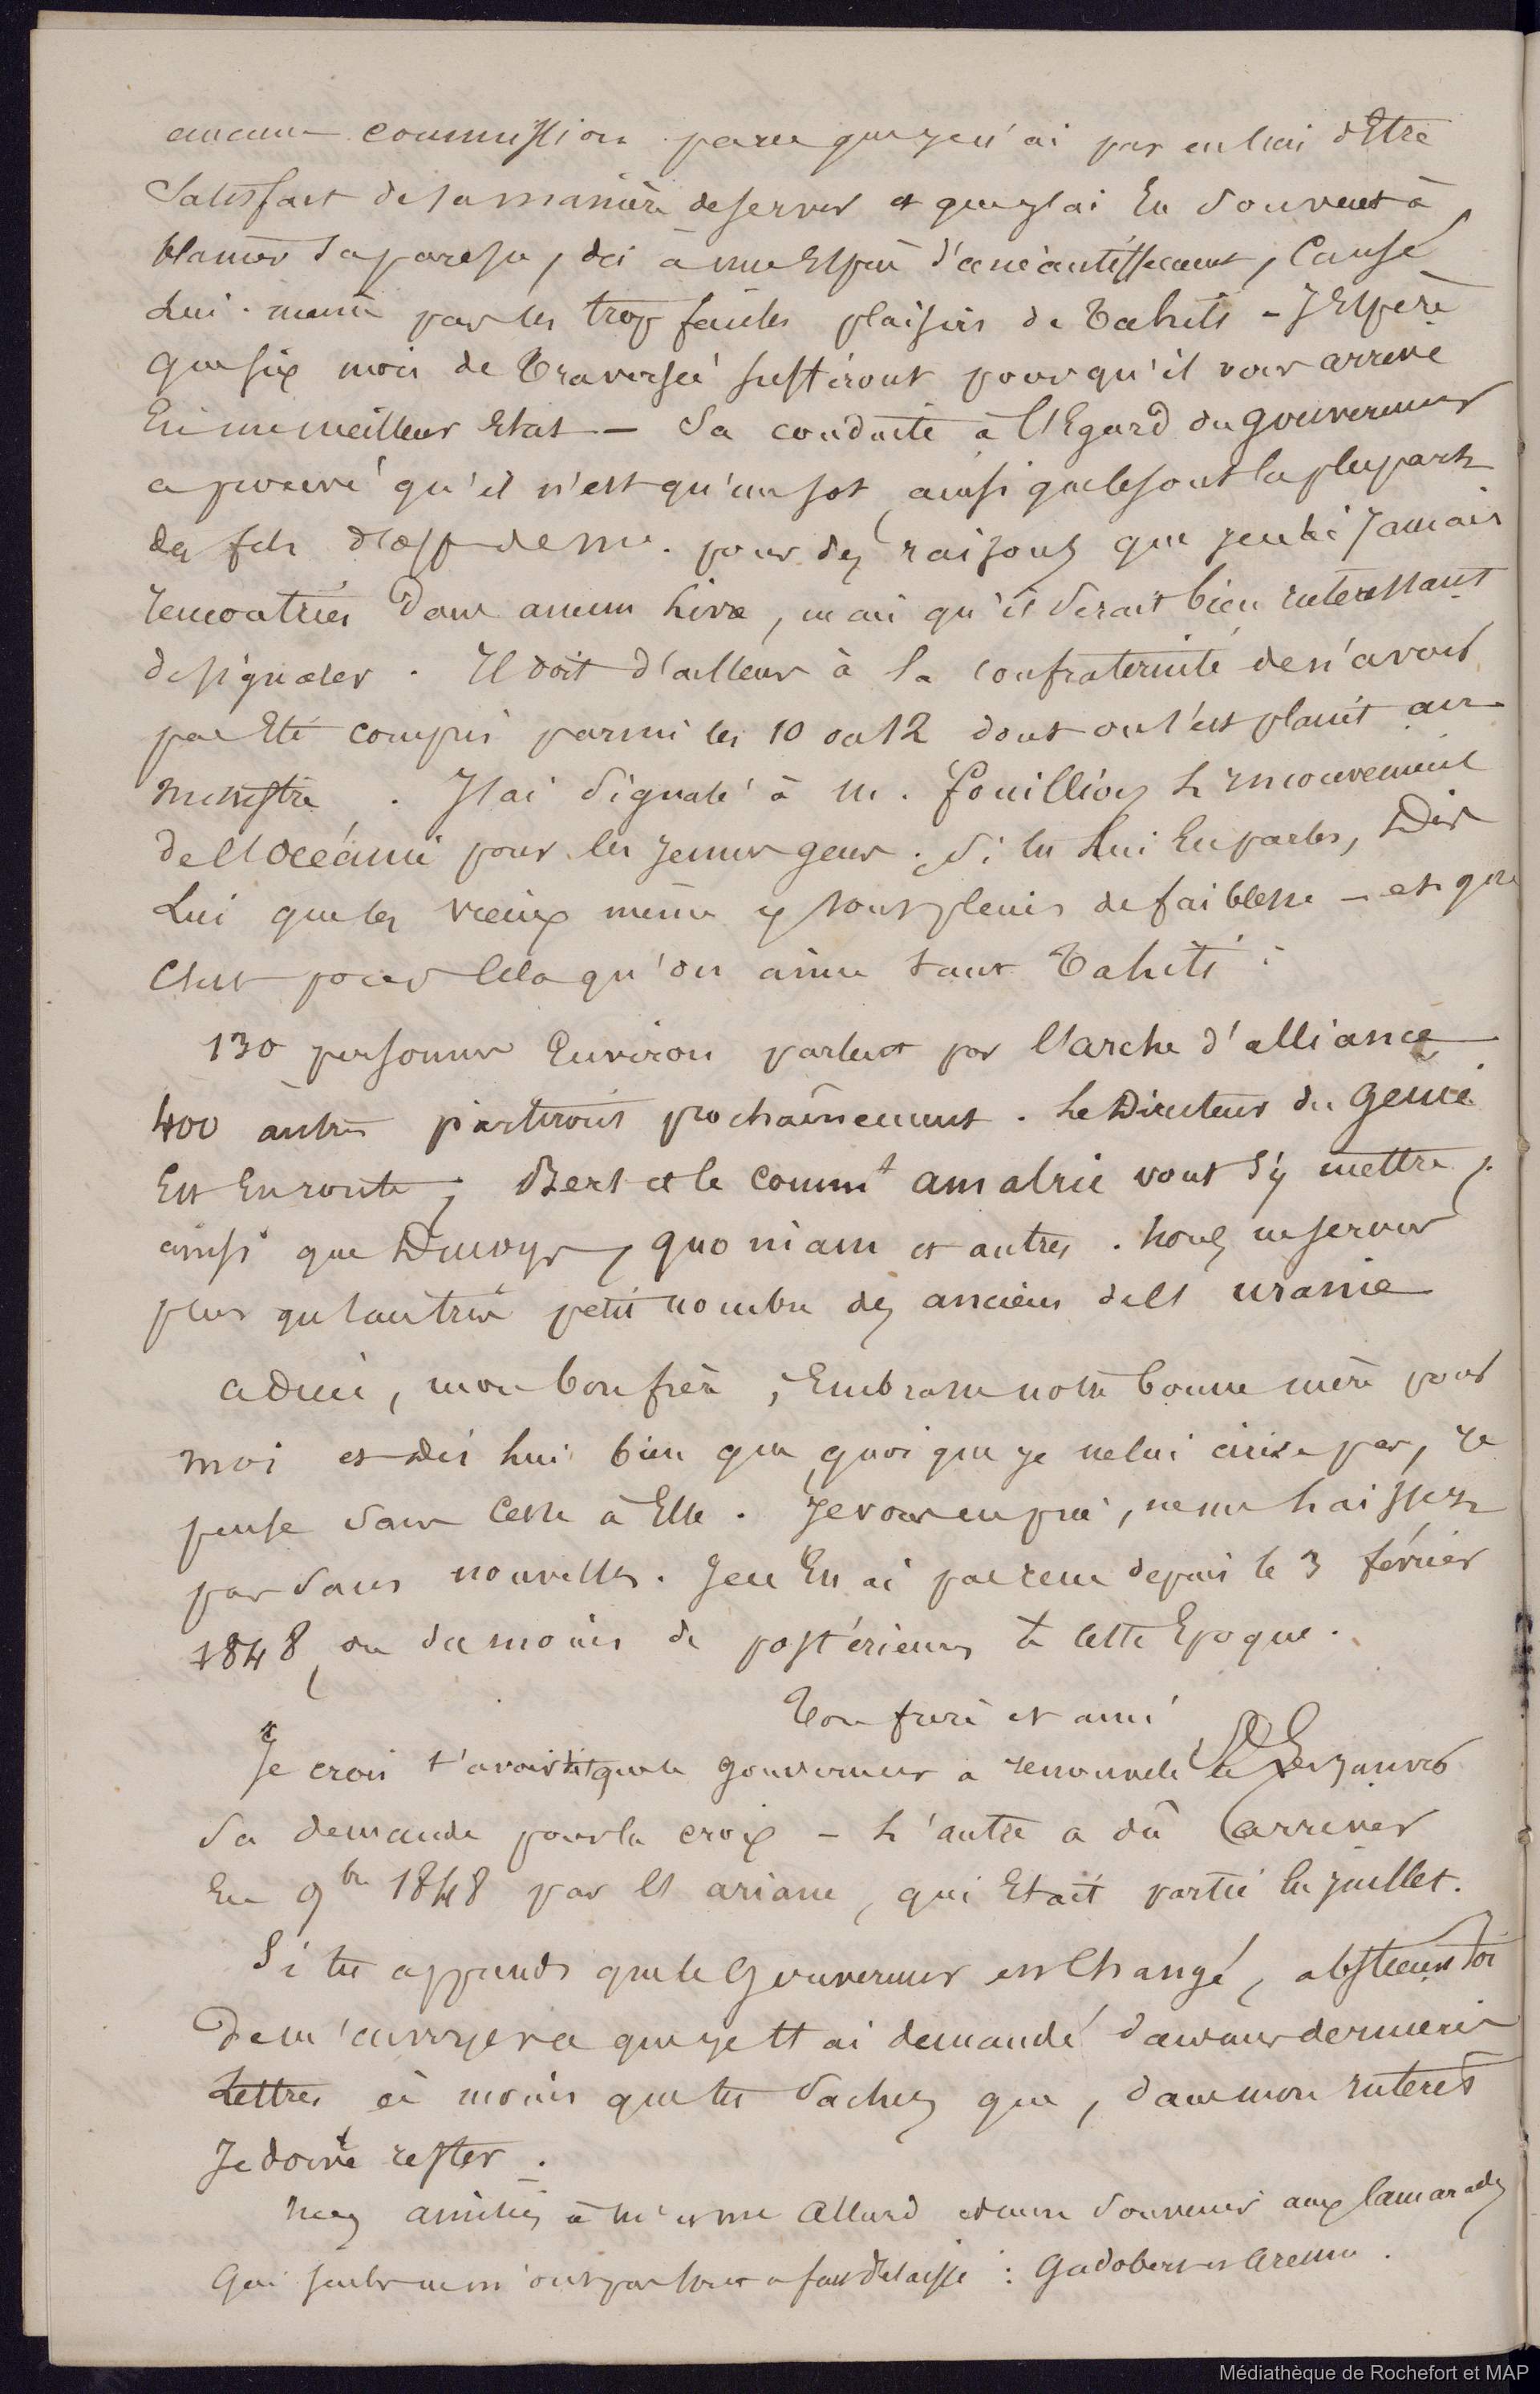 aucune commission parce que je n'ai pas eu lieu d'Etre
Satisfait de sa manière de servir et que j'ai Eu Souvent à
blamer sa paresse, dû à une Espèce d'anéantissement, Causé
Lui-même par les trop faciles plaisirs de Tahiti - J'Espère
que six mois de Traversée suffiront pour qu'il vous arrive
En un meilleur Etat - Sa conduite à l'Egard du gouverneur
a prouvé qu'il n'est qu'un sot, ainsi que le sont la plupart
des fils pour des raisons que je n'ai Jamais
rencontrées Dans aucun Livre, mais qu'il Serait bien interessant
de signaler. Il doit d'ailleurs à la confraternité de n'avoir
pas Eté compris parmi les 10 ou 12 dont on s'est plaint au
Ministre. J'ai Signalé à M. fouillioy L'inconvenient
de l'Océanie pour les jeunes gens. Si tu Lui En parles, Dis
Lui que les vieux même y sont pleins de faiblesse - et que
C'est pour Cela qu'on aime tant Tahiti :
130 personnes Environ partent par l'arche d'alliance
400 autres partiront prochainement. Le Directeur du Génie
Est En route ; Bert et le Commt amalric vont s'y mettre,
ainsi que quoniam et autres. Nous ne serons
plus qu'un très petit nombre des anciens de l'uranie
adieu, mon bon frère, Embrasse notre bonne mère pour
moi et Dis Lui bien que quoique je ne lui écrive pas, je
pense Sans Cesse à Elle. Je vous en prie, ne me Laissez
pas Sans nouvelles. Je n'En ai pas reçu depuis le 3 février
1848, ou du moins de postérieures à cette Epoque.
Ton frère et ami
Je crois t'avoir dit que le gouverneur a renouvelé Le 1er Janvier
Sa demande pour la croix - L'autre a dû arriver
En 9bre 1848 par l'ariane, qui Etait partie En juillet.
Si tu apprends que le Gouverneur est Changé, abstiens toi
De m'envoyer ce que je t'ai demandé dans mes dernieres
Lettres à moins que tu Saches que, dans mon interêt
Je doive rester.
Mes amitiés à Mr et Mme Allard et mon Souvenir aux Camarades
Qui seuls ne m'ont pas tout a fait Délaissé : Gadobert et
Médiathèque de Rochefort et MAP